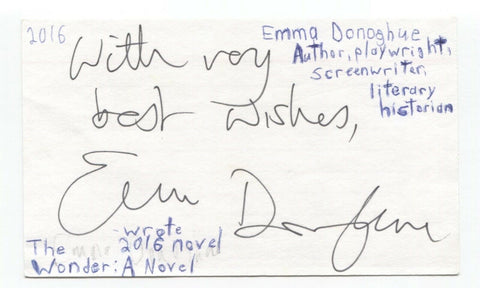 2016
Emma Donoghue
Author, playwright,
screenwriter,
literary
historian
With very
best wishes,
Emma Donoghue
wrote
The 2016 novel
Wonder: A Novel